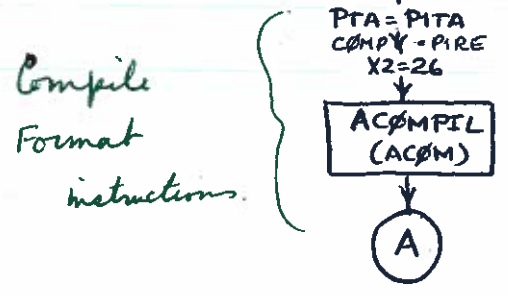 Compile
Format
instructions.
PTA = PITA
CØMPY = PIRE
X2=26
ACØMPIL
(ACØM)
A